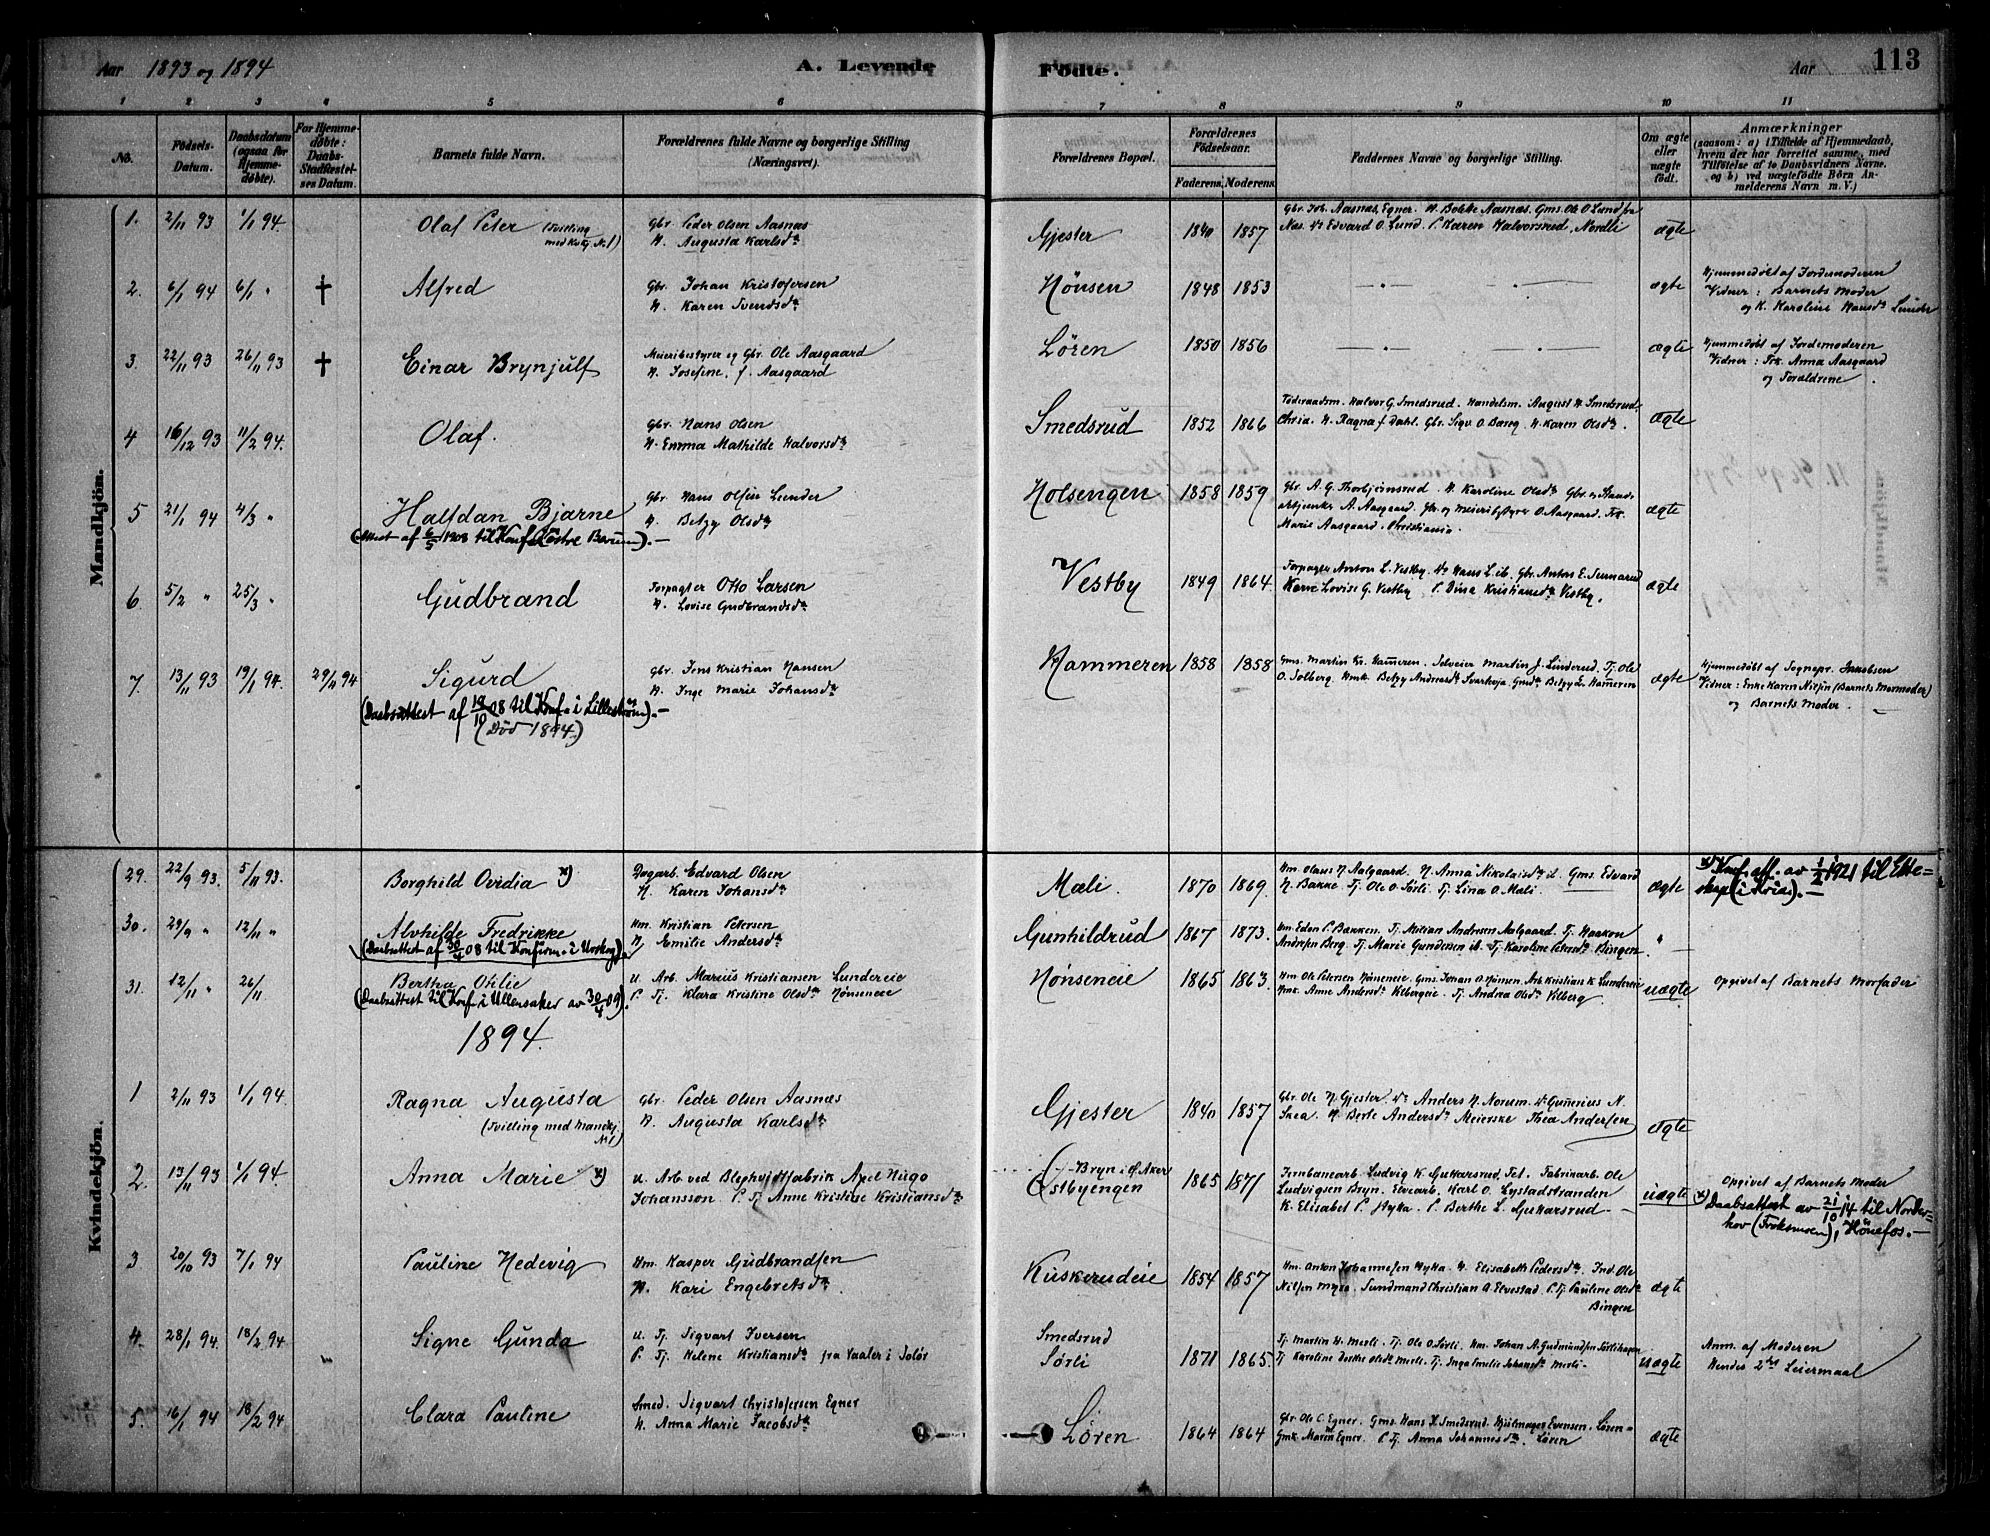 Aar 1893 og 1894
A. Levende Fødte.
Aar
113
1 2 3 4 5 6 7 8 9 10 11
No.
Fødsels-Datum.
Daabsdatum (ogsaa for Hjemmedøbte).
For Hjemmedøbte: Daabs-Stadfæstelses Datum.
Barnets fulde Navn.
Forældrenes fulde Navne og borgerlige Stilling (Næringsvei).
Forældrenes Bopæl.
Forældrenes Fødselsaar.
Faderens. Moderens.
Faddernes Navne og borgerlige Stilling.
Om ægte eller uægte født.
Anmærkninger
(saasom: a) i Tilfælde af Hjemmedaab, hvem der har forrettet samme, med Tilføielse af to Daabsvidners Navne, og b) ved uægtefødte Børn Anmelderens Navn m. V.)
Mandkjön.
1. 2/11 93 1/1 94. Olaf Peter (Tvilling med Kvkj. No 1)
Gbr. Peder Olsen Aasnæs
H. Augusta Karlsdtr
Gjester 1840 1857
ægte
2. 6/1 94 6/1 " † Alfred
Gbr. Johan Kristofersen
H. Karen Svendsdtr
Hönsen 1848 1853 — " — — " — ægte
Hjemmedøbt af Jordemoderen
Vidner: Barnets Moder
og K. Karoline Hansdtr Lunder
3. 22/11 93 26/11 93 † Einar Brynjulf
Meieribestyrer og Gbr. Ole Aasgaard
H. Josefine, f. Aasgaard
Lören 1850 1856 — " — — " — ægte
Hjemmedøbt af Jordemoderen
Vidner: Frk. Anna Aasgaard
og Forældrene.
4 16/12 93 11/2 94. Olaf.
Gbr. Hans Olsen
H. Emma Mathilde Halvorsdtr
Smedsrud 1852 1866
Föderaadsm. Halvor G. Smedsrud. Handelsm. August H. Smedsrud,
Chria. H. Ragna f. Dahl. Gbr. Sigv. O. Bareg. H. Karen Olsdtr.
ægte
5 21/1 94 4/3 " Halfdan Bjarne
(Attest af 6/5 1908 til Konf. i Östre Bærum).—
Gbr. Hans Olsen Lunder
H. Betzy Olsdtr
Holsengen 1858 1859
Gbr. A. G. Thorbjörnsrud. H. Karoline Olsdtr Gbr. og
A. Aasgaard. Gbr. og Meieribestyrer O. Aasgaard. Frk.
Marie Aasgaard. Christiania.
ægte
6. 5/2 " 25/3 " Gudbrand
Forpagter Otto Larsen
H. Lovise Gudbrandsdtr
Vestby 1849 1864
Forpagter Anton L. Vestby. Us Hans L. ib. Gbr. Anton E.
Kone Lovise G. Vestby P. Dina Kristiansdtr Vestby.
ægte
7. 13/11 93 19/1 94. 29/11 94 Sigurd
(Daabsattest af 18/10 08 til Konf. i Lilleström).—
(Död 1894)
Gbr. Jens Kristian Hansen
H. Inge Marie Johansdtr
Hammeren 1858 1858
Gms. Martin Kr. Hameren. Selveier Martin J. Linderud. Tj. Ole
O. Solberg. Hmk. Betzy Andreasdtr Svarkvja. Gmdtr Betzy L. Hameren
ægte
Hjemmedøbt af Sognepr. Jakobsen
Vidner: Enke Karen Nilsen (Barnets Mormoder)
og Barnets Moder.
Kvindekjön.
29. 22/9 93. 5/11 93. Borghild Ovidia x)
Dagarb. Edvard Olsen
H. Karen Johansdtr
Mæli. 1870 1869.
Hm. Olaus N. Aalgaard. H. Anna Nikolaisdtr ib. Gms. Edvard
N. Bakke. Tj. Ole O. Sörli. Tj. Lina O. Mæli.
ægte
x) Konf. att. av 1/2 1921 til Ekteskap (i Kria).—
30. 29/9 " 12/11 " Alvhilde Fredrikke
(Daabsattest af 30/4 08 til Konfirm. i Urskog).
Hm. Kristian Petersen
H. Emilie Andersdtr
Gunhildrud 1867 1873.
Hm. Eden P. Bakken. Tj. Milian Andersen Aalgaard. Tj. Haakon
Andersen Berg. Tj. Marie Gundersen ib. Tj. Karoline Petersdtr Bingen.
"
31. 12/11 " 26/11 Bertha Otilie
(Daabsattest til Konf. i Ullensaker av 30/4 09).
U. Arb. Marius Kristiansen Lundereie
P. Tj. Klara Kristine Olsdtr Hönseneie
Hönseneie 1865 1863.
Hm. Ole Petersen Höneneie. Gms. Johan O. Hönsen. Arb. Kristian K. Lundereie
Hmk. Anne Andersdtr Klbergeie. Tj. Andrea Olsdtr Klberg.
uægte
Opgivet af Barnets Morfader
1894.
1 2/11 93 1/1 94. Ragna Augusta
(Tvilling med Mandkj. No 1)
Gbr. Peder Olsen Aasnæs
H. Augusta Karlsdtr
Gjester 1840 1857
Gbr. Ole N. Gjester. Us Anders N. Norum. Us Gunerius N.
Skea. H. Berte Andersdtr Meierske Thea Andersen
ægte
2. 13/11 93 1/1 94. Anna Marie x)
U. Arb. ved Blyhvidtfabrik Axel Hugo
Johansson P. Tj. Anne Kristine Kristiansdtr
Bryn i Ø. Aker
Østbyengen 1865 1871
Jernbanearb. Ludvig K. Gukkarsrud, Fet. Fabrikarb. Ole
Ludvigsen Bryn. Elvearb. Karl O. Lystadstranden
K. Elisabet P. Hykka. P. Berthe L. Gukkarsrud.
uægte
Opgivet af Barnets Moder
x) Daabsattest av 21/10 14 til Norderhov (Froksmoen), Hönefos.—
3 20/10 93 7/1 94 Pauline Hedevig
Hm. Kasper Gudbrandsen
H. Kari Engebretsdtr.
Kuskerudeie 1854 1857
Hm. Anton Johannesen Hykka. H. Elisabeth Pedersdtr. Ind. Ole
Nilsen Myra. Sundmand Christian A. Elvestad. P. Tj. Pauline Olsdtr
Bingen
ægte
4. 28/1 94. 18/2 94 Signe Gunda
U. Tj. Sigvart Iversen
P. Tj. Helene Kristiansdtr fra Vaaler i Solör
Smedsrud
Sörli 1871 1865.
Tj. Martin H. Mærli. Tj. Ole O. Sörli. Hm. Johan A. Gudmundsen Sörlihagen
Tj. Karoline Dorthe Olsdtr Mærli. Tj. Inga Emilie Johansdtr Mærli.
uægte
Anm. af Moderen
Hendes 2det Leiermaal
5. 16/1 94 18/2 94 Clara Pauline
Smed. Sigvart Christofersen Egner
H. Anna Marie Jacobsdtr
Lören 1864 1864
Gbr. Ole C. Egner. Gms. Hans H. Smedsrud. Hjulmager Evensen. Lören
Gmk. Maren Egner. P. Tj. Anna Johannesdtr. Lören
ægte